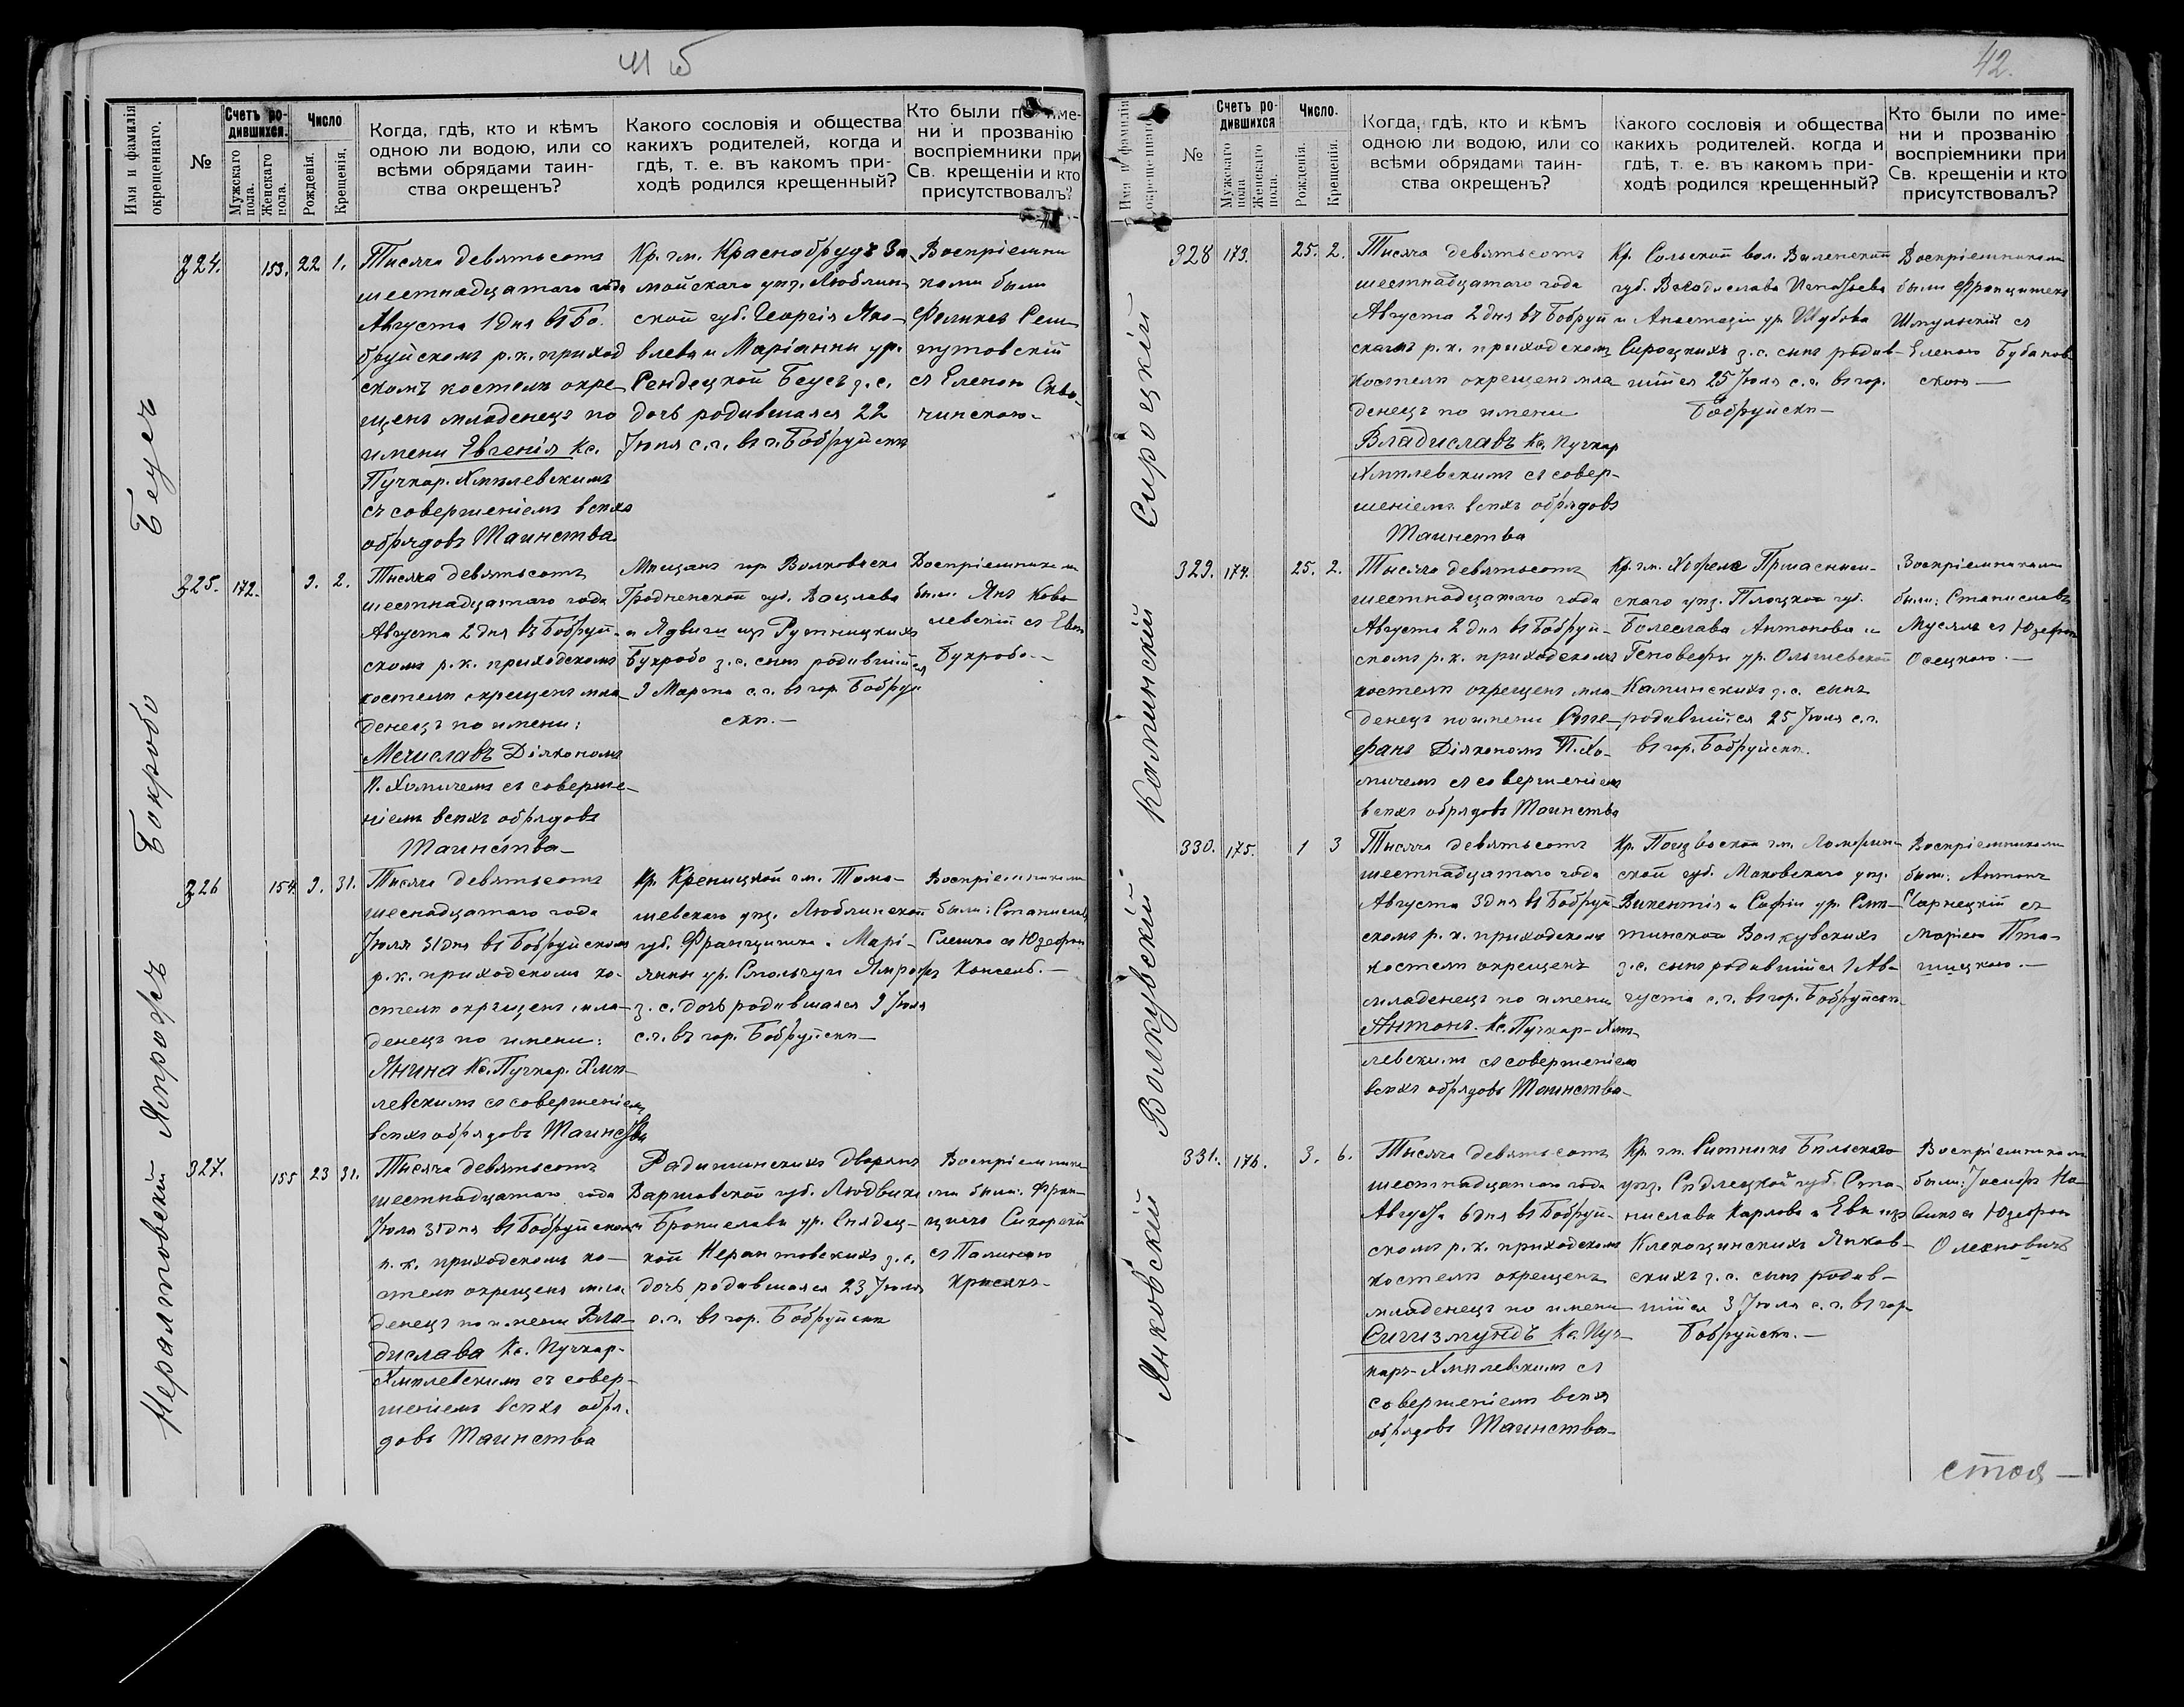 41 б
Имя и фамилія окрещеннаго.
№
Счетъ родившихся.
Мужскаго пола.
Женскаго пола.
Число
Рожденія.
Крещенія.
Когда, гдѣ, кто и кѣмъ
одною ли водою, или со
всѣми обрядами таин-
ства окрещенъ?
Какого сословія и общества
какихъ родителей, когда и
гдѣ, т. е. въ какомъ при-
ходѣ родился крещенный?
Кто были по име-
ни и прозванію
воспріемники при
Св. крещеніи и кто
присутствовалъ?
Беусъ
324.
153.
22
1.
Тысяча девятьсотъ
шестнадцатаго года
Августа 1 дня въ Бо-
бруйскомъ р.к. приход
скомъ костелѣ окре-
щенъ младенецъ по
имени Евгенія Кс.
Пучкар. Хмѣлевскимъ
съ совершеніемъ всѣхъ
обрядовъ Таинства
Кр. гм. Краснобрудъ За-
мойскаго уѣз. Люблин-
ской губ. Георгія Яко-
влева и Маріанны ур.
Сендецкой Беусъ з.с.
дочь родившаяся 22
Іюля с.г. въ г. Бобруйскѣ
Воспріемни
ками были
Феликсъ
съ Еленою
Бокробо
325.
172.
9.
2.
Тысяча девятьсотъ
шестнадцатаго года
Августа 2 дня въ Бобруй-
скомъ р.к. приходскомъ
костелѣ окрещенъ мла-
денецъ по имени:
Мечиславъ Діякономъ
П. Хомичемъ съ соверше-
ніемъ всѣхъ обрядовъ
Таинства-
Мѣщанъ гор. Волковыска
Гродненской губ. Вацлава
и Ядвиги из Рутницкихъ
Букробо з.с. сынъ родившійся
9 Марта с.г. въ гор. Бобруй
скѣ.-
Воспріемниками
были Янъ Кова
левскій съ
Букробо-
Ямрозъ
326
154
9.
31.
Тысяча девятьсотъ
шеснадцатаго года
Іюля 31 дня въ Бобруйскомъ
р.к. приходскомъ ко-
стелѣ окрещенъ мла-
денецъ по имени:
Янина Кс. Пучкар. Хмѣ-
левскимъ съ совершеніемъ
всѣхъ обрядовъ Таинства
Кр. Креницкой гм. Тома-
шевскаго уѣз. Люблинской
губ. Францишка и Марі-
янны ур. Смольчуги Ямрозъ
з.с. дочь родившаяся 9 Іюля
с.г. въ гор. Бобруйскѣ-
Воспріемниками
были: Станиславъ
съ Юзефою
Нерантовскій
327.
155
23
31.
Тысяча девятьсотъ
шестнадцатаго года
Іюля 31 дня въ Бобруйскомъ
р.к. приходскомъ ко-
стелѣ окрещенъ мла-
денецъ по имени Вла-
дислава Кс. Пучкар-
Хмѣлевскимъ съ совер-
шеніемъ всѣхъ обря-
довъ Таинства
Радиминскихъ дворянъ
Варшавской губ. Людвика
и Брониславы ур. Снядец-
кой Нерантовскихъ з.с.
дочь родившаяся 23 Іюля
с.г. въ гор. Бобруйскѣ
Воспріемника
ми были: Фран-
цискъ Сикорскій
съ Палиною
42.
Имя и фамилія окрещеннаго
№
Счетъ родившихся
Мужскаго пола
Женскаго пола.
Число.
Рожденія.
Крещенія.
Когда, гдѣ, кто и кѣмъ
одною ли водою, или со
всѣми обрядами таин-
ства окрещенъ?
Какого сословія и общества
какихъ родителей. когда и
гдѣ, т. е. въ какомъ при-
ходѣ родился крещенный?
Кто были по име-
ни и прозванію
воспріемники при
Св. крещеніи и кто
присутствовалъ?
Сироцкій
328
173.
25.
2.
Тысяча девятьсотъ
шестнадцатаго года
Августа 2 дня въ Бобруй
скомъ р.к. приходскомъ
костелѣ окрещенъ мла-
денецъ по имени
Владиславъ Кс. Пучкар
Хмѣлевскимъ съ совер-
шеніемъ всѣхъ обрядовъ
Таинства
Кр. Сольской вол. Виленской
губ. Владислава Игнатьева
и Анастазіи ур. Шубова
Сироцкихъ з.с. сынъ родив-
шійся 25 Іюля с.г. въ гор.
Бобруйскѣ-
Воспріемниками
были Францишекъ
Шпульскій съ
Еленою Бубанов-
скою-
Каминскій
329.
174.
25.
2.
Тысяча девятьсотъ
шестнадцатаго года
Августа 2 дня въ Бобруй-
скомъ р.к. приходскомъ
костелѣ окрещенъ мла-
денецъ по имени Сте-
фанъ Діякономъ П. Хо-
мичемъ съ совершеніемъ
всѣхъ обрядовъ Таинства
Кр. гм. Праснышс-
скаго уѣз. Плоцкой губ.
Болеслава Антонова и
Геновефы ур. Ольшевской
Каминскихъ з.с. сынъ
родившійся 25 Іюля с.г.
въ гор. Бобруйскѣ.
Воспріемниками
были: Станиславъ
Мусялъ съ Юзефою
Осецкою.-
Волкувскій
330.
175.
1
3
Тысяча девятьсотъ
шестнадцатаго года
Августа 3 дня въ Бобруй
скомъ р.к. приходскомъ
костелѣ окрещенъ
младенецъ по имени
Антонъ. Кс. Пучкар-Хмѣ
левскимъ съ совершеніемъ
всѣхъ обрядовъ Таинства-
Кр. гм. Ломжин-
ской губ. Маковскаго уѣз.
Викентія и Софіи ур.
Волкувскихъ
з.с. сынъ родившійся 1 Ав-
густа с.г. въ гор. Бобруйскѣ-
Воспріемниками
были: Антонъ
Чарнецкій съ
Маріею Пта-
шицкою.-
Янковскій
331.
176.
3.
6.
Тысяча девятьсотъ
шестнадцатаго года
Августа 6 дня въ Бобруй-
скомъ р.к. приходскомъ
костелѣ окрещенъ
младенецъ по имени
Сигизмундъ Кс. Пуч-
каръ-Хмѣлевскимъ съ
совершеніемъ всѣхъ
обрядовъ Таинства-
Кр. гм. Ситникъ Бѣльскаго
уѣз. Сѣдлецкой губ. Ста-
нислава Карлова и Евы из
Клекоцинскихъ Янков-
скихъ з.с. сынъ родив-
шійся 3 Іюля с.г. въ гор.
Бобруйскѣ.-
Воспріемниками
были: Іосифъ
съ Юзефою
Олехновичъ